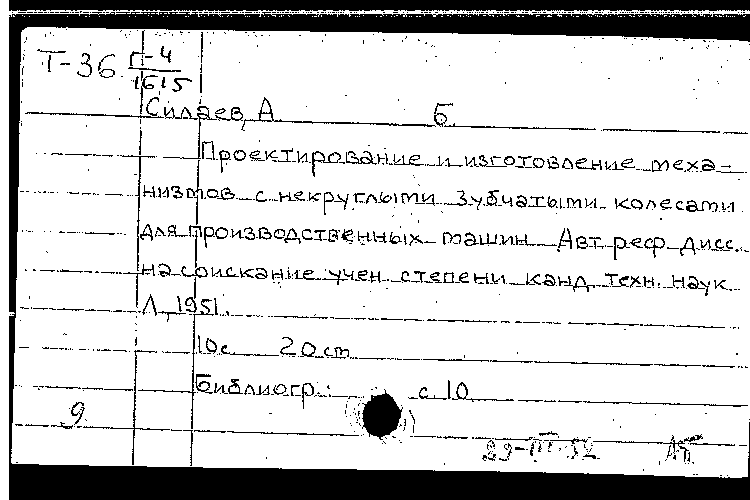 Т-36 Г-4
1615
Силаев, А Б.
Проектирование и изготовление меха-
низмов с некруглыми зубчатыми колесами
для производственных машин Автореф дисс.
на соискание учен. степени канд. техн. наук
Л., 1951.
10с. 20 см
Библиогр.: с. 10
9
29-III-52 АП